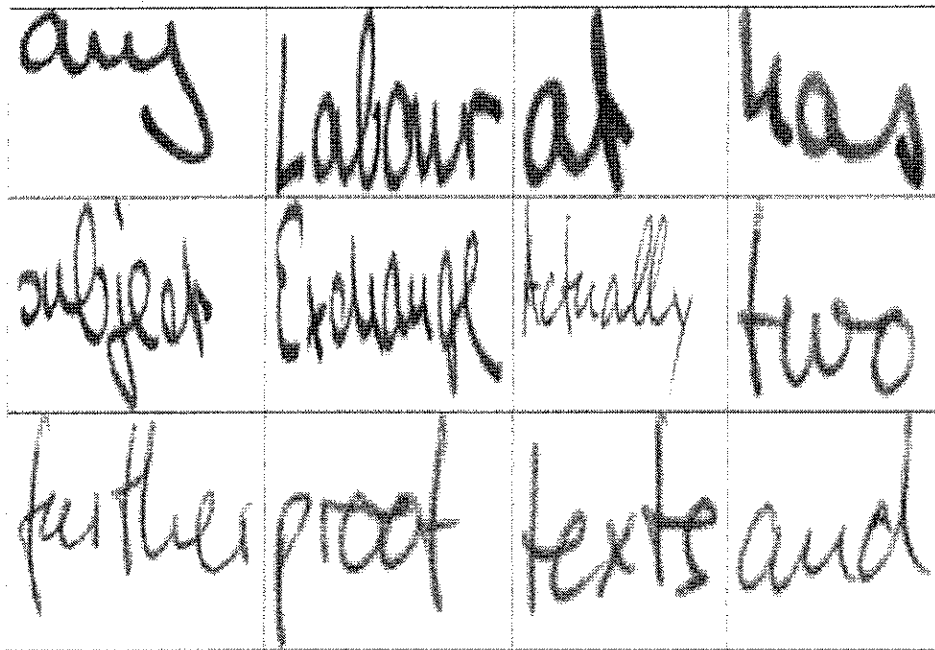 any Labour at has
subject Exchange actually two
further proof texts and